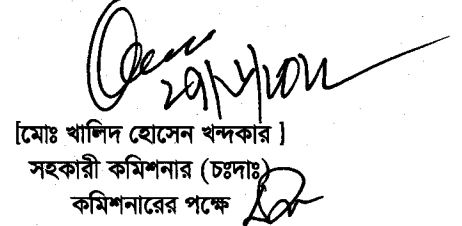 [মোঃ খালিদ হোসেন খন্দকার ]
সহকারী কমিশনার (চঃদাঃ)
কমিশনারের পক্ষে